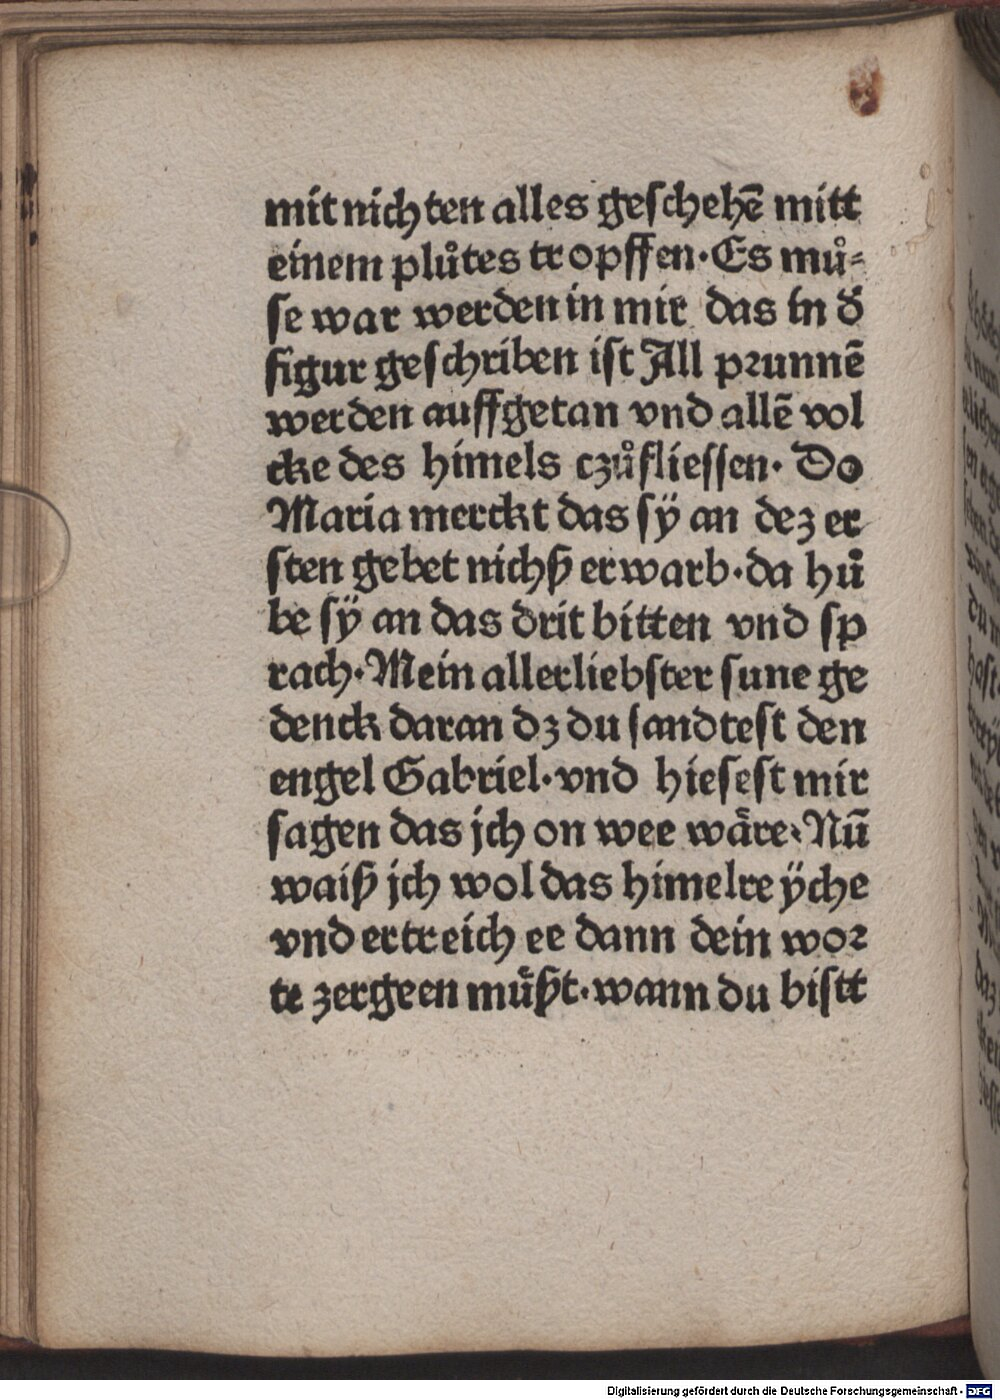 mit nichten alles geschehē mitt
einem plůtes tropffen·Es mů⸗
se war werden in mir das in d̕
figur geschriben ist All prunnē
werden auffgetan vnd allē vol
cke des himels czůfliessen· Do
Maria merckt das sÿ an dez er
sten gebet nichß erwarb·da hů
be sÿ an das drit bitten vnd sp
rach·Mein allerliebster sune ge
denck daran dz du sandtest den
engel Gabriel·vnd hiesest mir
sagen das jch on wee wäre·Nū
waiß jch wol das himelreÿche
vnd ertreich ee dann dein wor
te zergeen müßt·wann du bistt
Digitalisierung gefördert durch die Deutsche Forschungsgemeinschaft - DFG